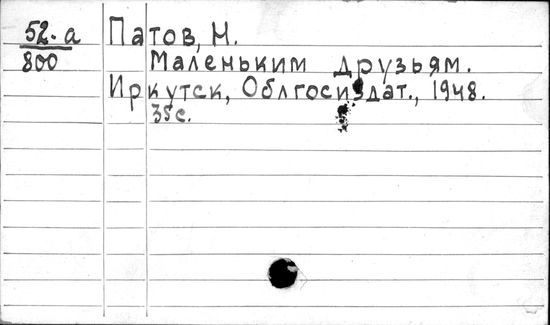 52. а Патов, Н.
800 Маленьким друзьям.
Иркутск, Облгосиздат., 1948.
35с.